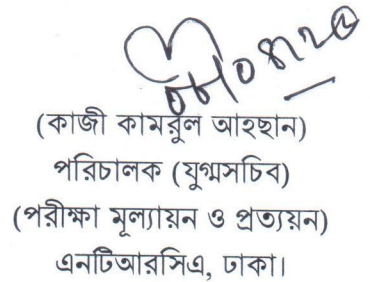 (কাজী কামরুল আহছান)
পরিচালক (যুগ্মসচিব)
(পরীক্ষা মূল্যায়ন ও প্রত্যয়ন)
এনটিআরসিএ, ঢাকা।